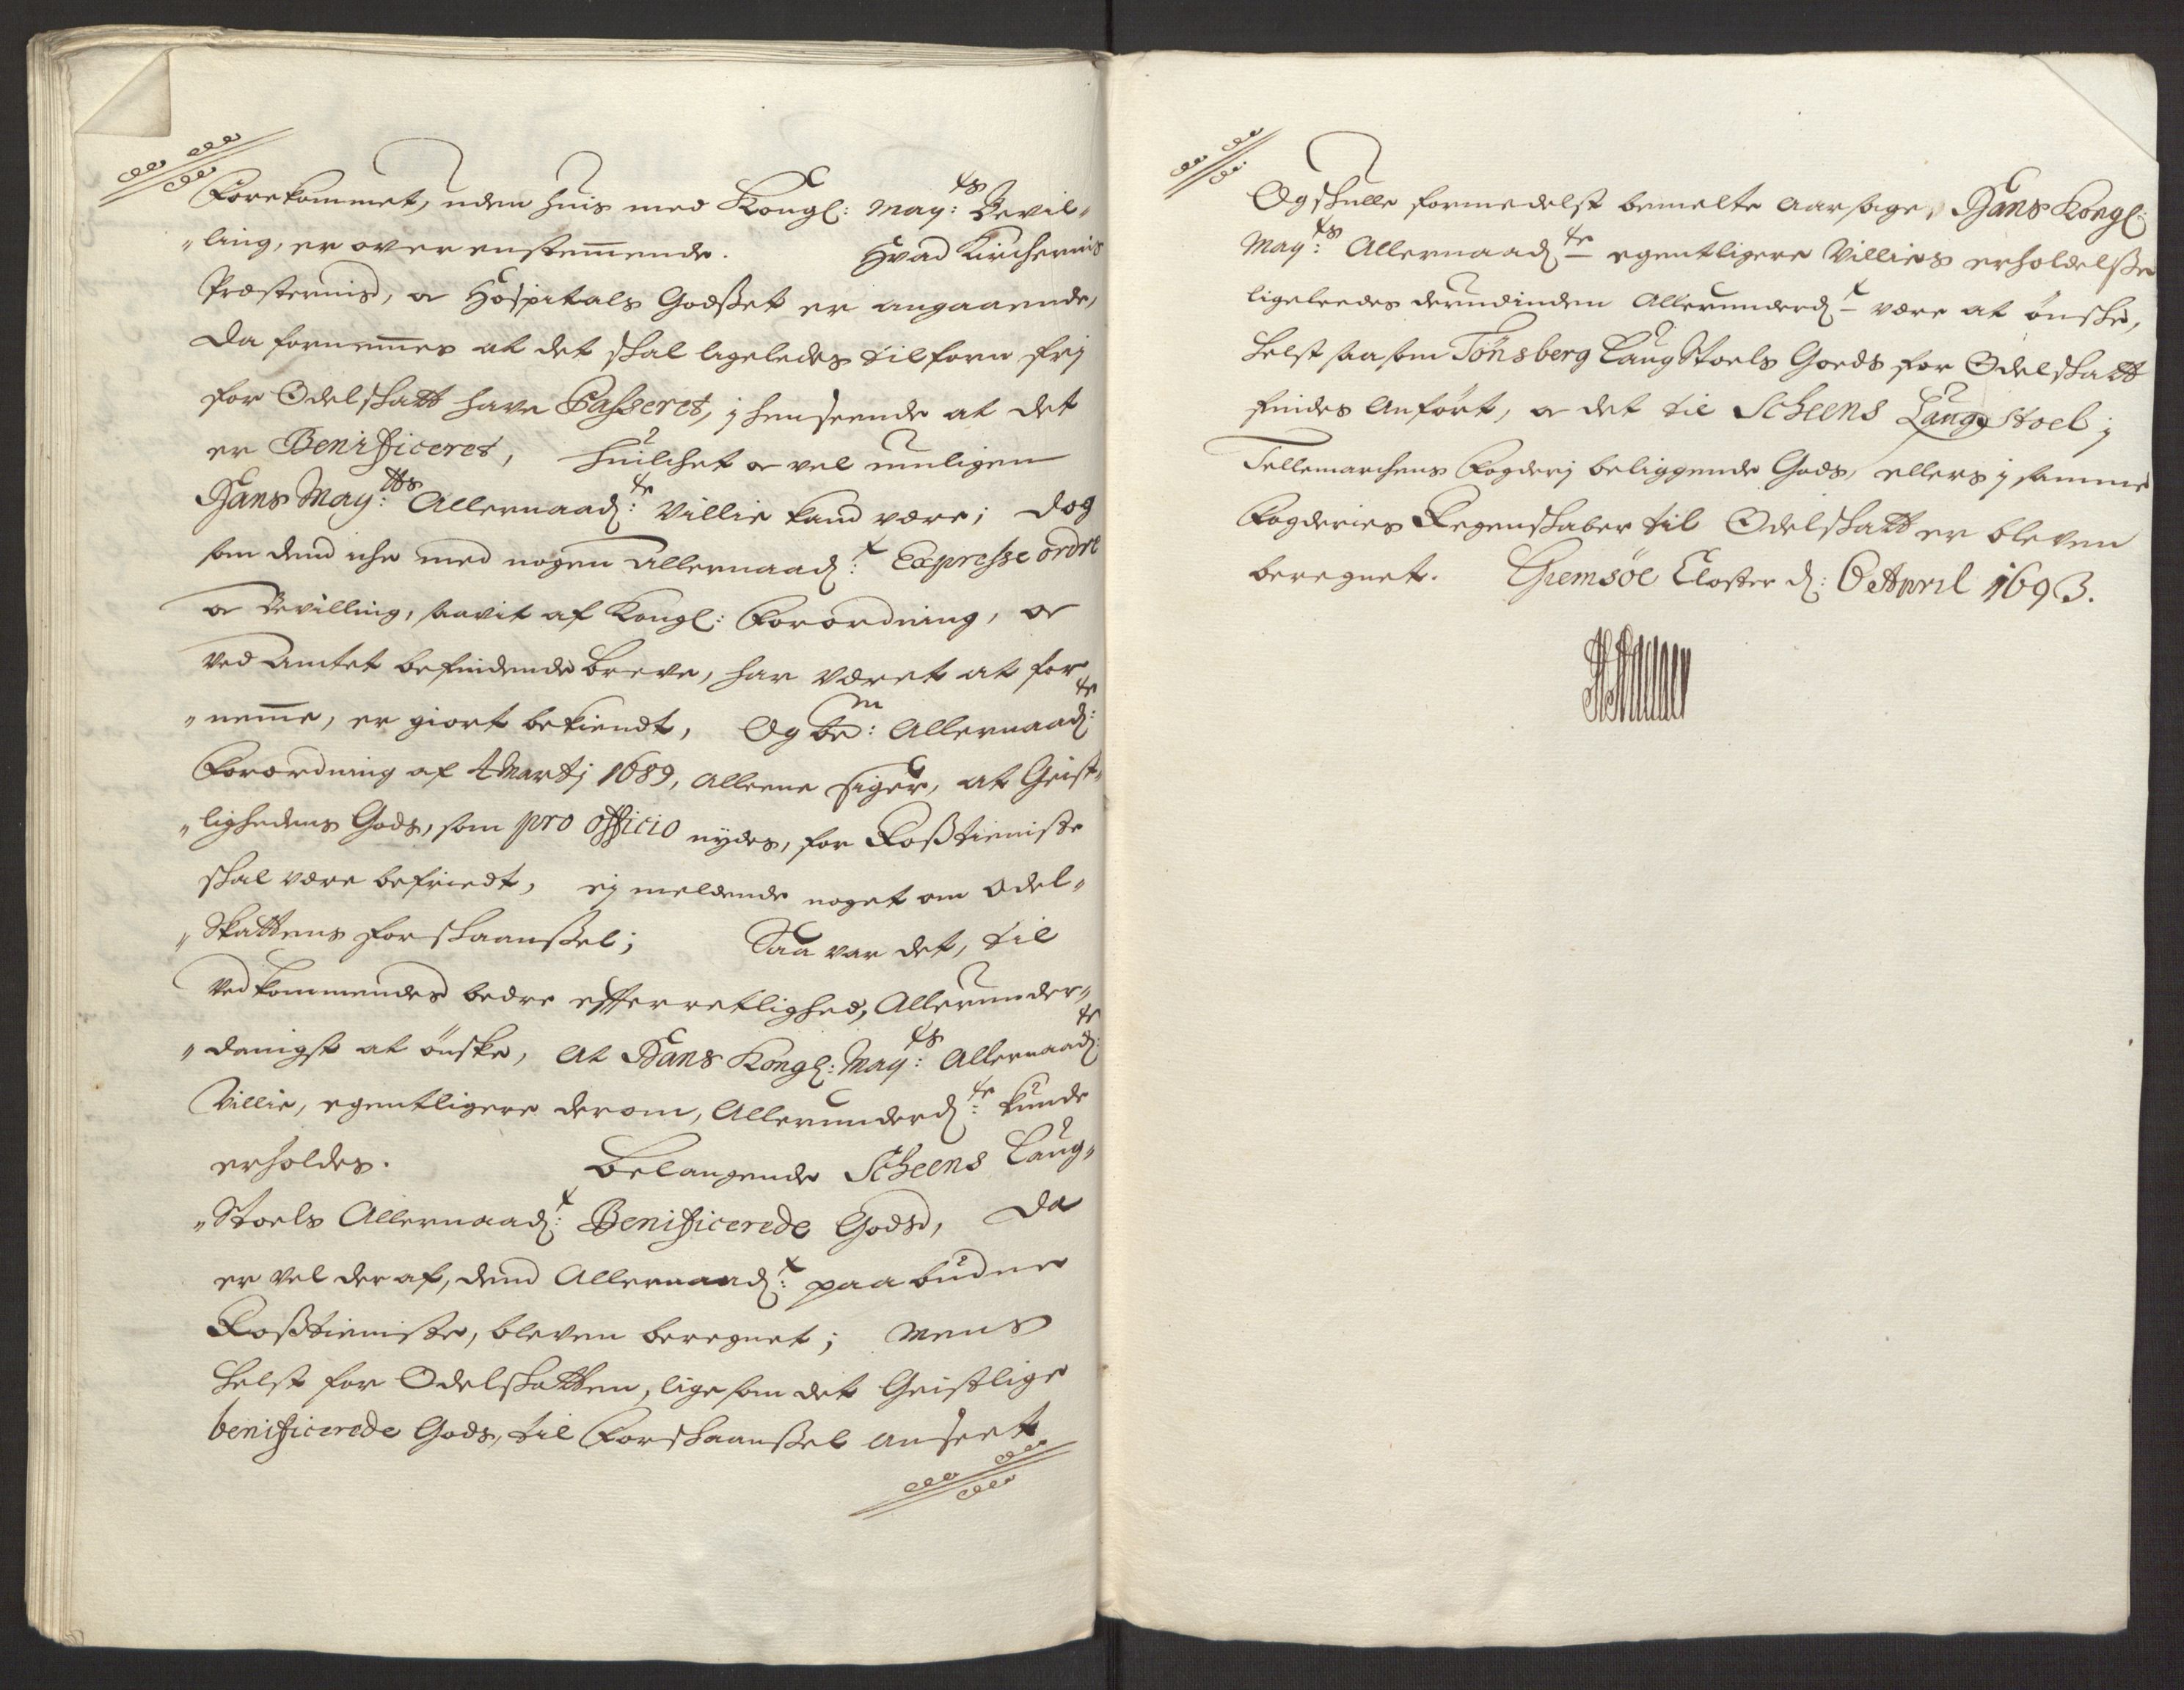 Forekommet, uden huis med Kongl: May:ts Bevil„
„ling, er over enstemende. Hvad Kirchernis
Præsternis, oc Hospitals Godsset er angaaende,
da fornemes at det skal ligeledes tilforn frj
for Odelskatt hafve Passeret, j henseende at det
er Benificeret, huilchet oc vel muligen
Hans May:tts Allernaad:te Villie kand være; dog
som dend iche med nogen allernaad:t Expresse ordre
oc Bevilling, saavit af Kongl: Forordning, oc
ved Amtet befindende breve, har været at for„
„neme, er giort bekiendt, Og be:m Allernaad:te
Forordning af 4 Martj 1689, alleene siger, at Geist„
„lighedens Gods, som pro officio nydes, for Rosstieniste
skal være befriedt, ej meldende noget om Odel„
„Skattens forskaanssel; Saa var det, til
vedkommendes bedre efterretlighed, Allerunder„
„danigst at önske, at Hans Kongl: May:ts Allernaad:te
Villie, egentligere derom, Allerunderd:te kunde
erholdes. Belangende Scheens Laug„
„Stoels Allernaad:t Benificerede Gods, da
er vel der af, dend Allernaad:t paabudne
Rosstieniste, bleven beregnet; Mens
helst for Odelskatten, lige som det Geistlige
benificerede Gods, til Forskaanssel anseet
Og skulle formedelst bemelte aarsage, Hans Kongl:
May:ts Allernaad:te egentligere Villies erholdelsse
ligeleedes derudinden Allerunderd:t være at önske,
helst saasom Tönsberg Laugstoels Goeds for Odelskatt
findes anfört, oc det til Scheens Laugstoel j
Tellemarchens Fogderj beliggende Gods, ellers j samme
Fogderies Regenskaber til Odelskatt er bleven
beregnet. Giemsöe Closter d: 6 April 1693.